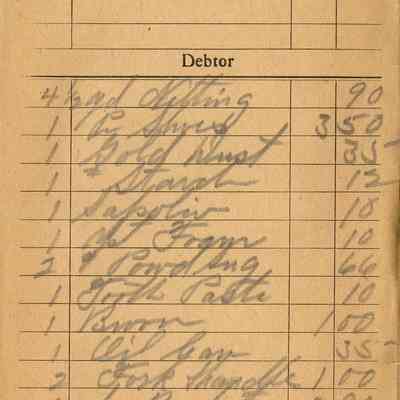 Debtor
4 ½ yd Netting 90
1 Pr Shoes 3 50
1 Gold Dust 35
1 Starch 12
1 Sapolio 10
1 Foam 10
2 # Powd Sug 66
1 Tooth Paste 10
1 Broom 1 00
1 Oil Can 35
2 Fork Handle 1 00